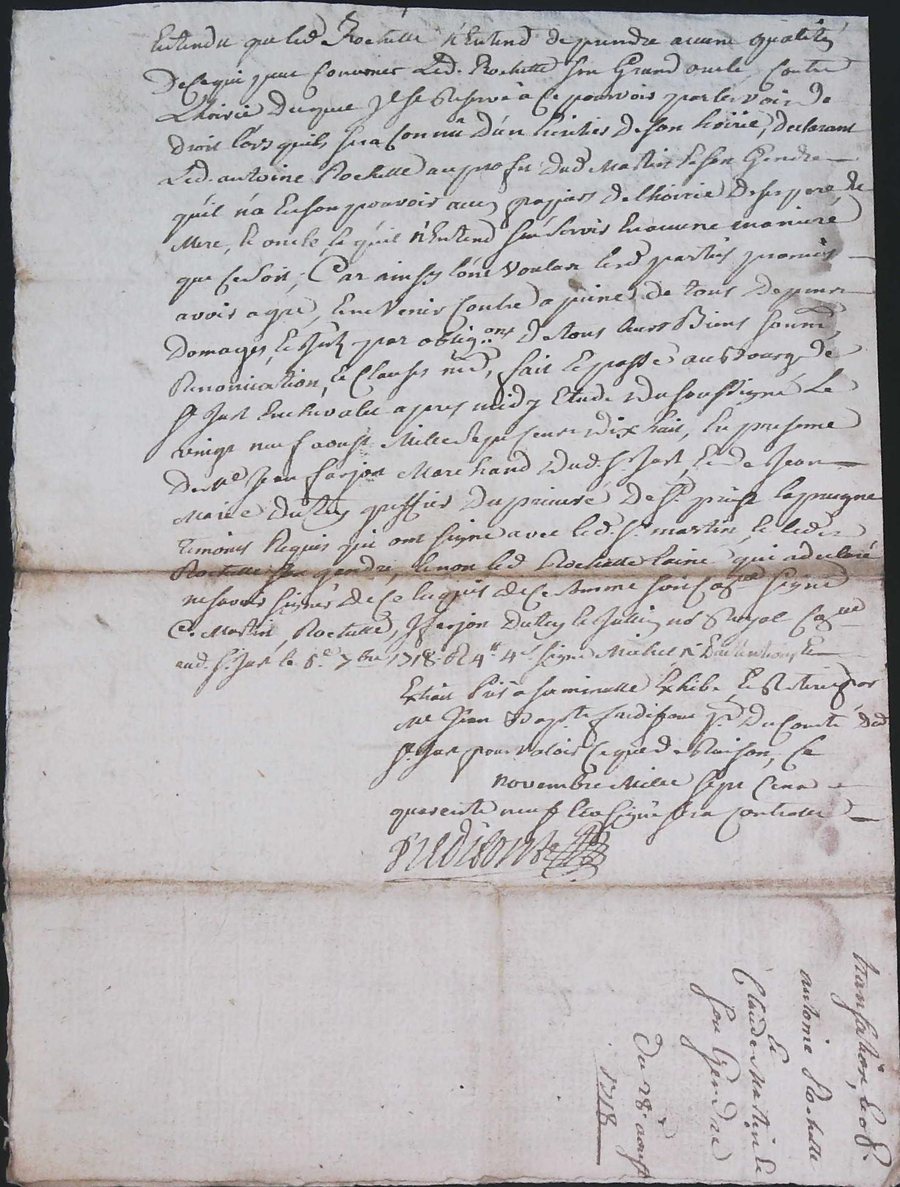 Entendu que led. Rochette n'Entend de prendre aucune qualité
De ce qui peut Concerner Led. Rochette son Grand oncle, Contre
Lhoirie duquel Il se Reserve à ce pouvoir par les voix de
Droit lors quils sera Connu D'un heritier de son hoirie, declarant
Led. antoine Rochette au profit dud. Martin & son Gendre
qu'il n'a En son pouvoir aucuns papiers de lhoirie de ses pere &
Mere, & oncle, & qu'il n'Entend s'en servir En aucune maniere
que ce soit, Car ainsy l'ont voulu lesd. parties promis
avoir a gré, & ne venir Contre a peine de tous depens
Domages & par obligons de tous leurs Biens soumis
Renonciation, & Clauses fait & passé au Bourg de
St. Just En chevalet apres midy Etude du soussigné Le
vingt neuf aoust Mille sept cents dix huit, En presence
De Me. Jean farjon Marchand dud. St. Just, & de Jean
Marie Dulery greffier du prieuré de St. priest laprugne
temoins Requis qui ont signé avec led. Sr. martin, & led.
Rochette son gendre, & non led. Rochette laine qui a declaré
ne savoir signer de ce Enquis de Ce somme soit signé
C. Martin, Rochette, J. farjon Dulery & no. Royal
aud. St. Just le 8e. 7bre 1718 signé Michel
Extrait pris a sa minutte Exhibé, & Retiré par
Me. Jean Bapte. fredifont du Comté dud.
St. Just pour valoir ce que de Raison, ce
novembre Mille sept Cens
quarente neuf & sera Controllé
fredifont
transaction, Entre
antoine Rochette
&
Claude Martin &
son Gendre
Du 28. aoust
1718